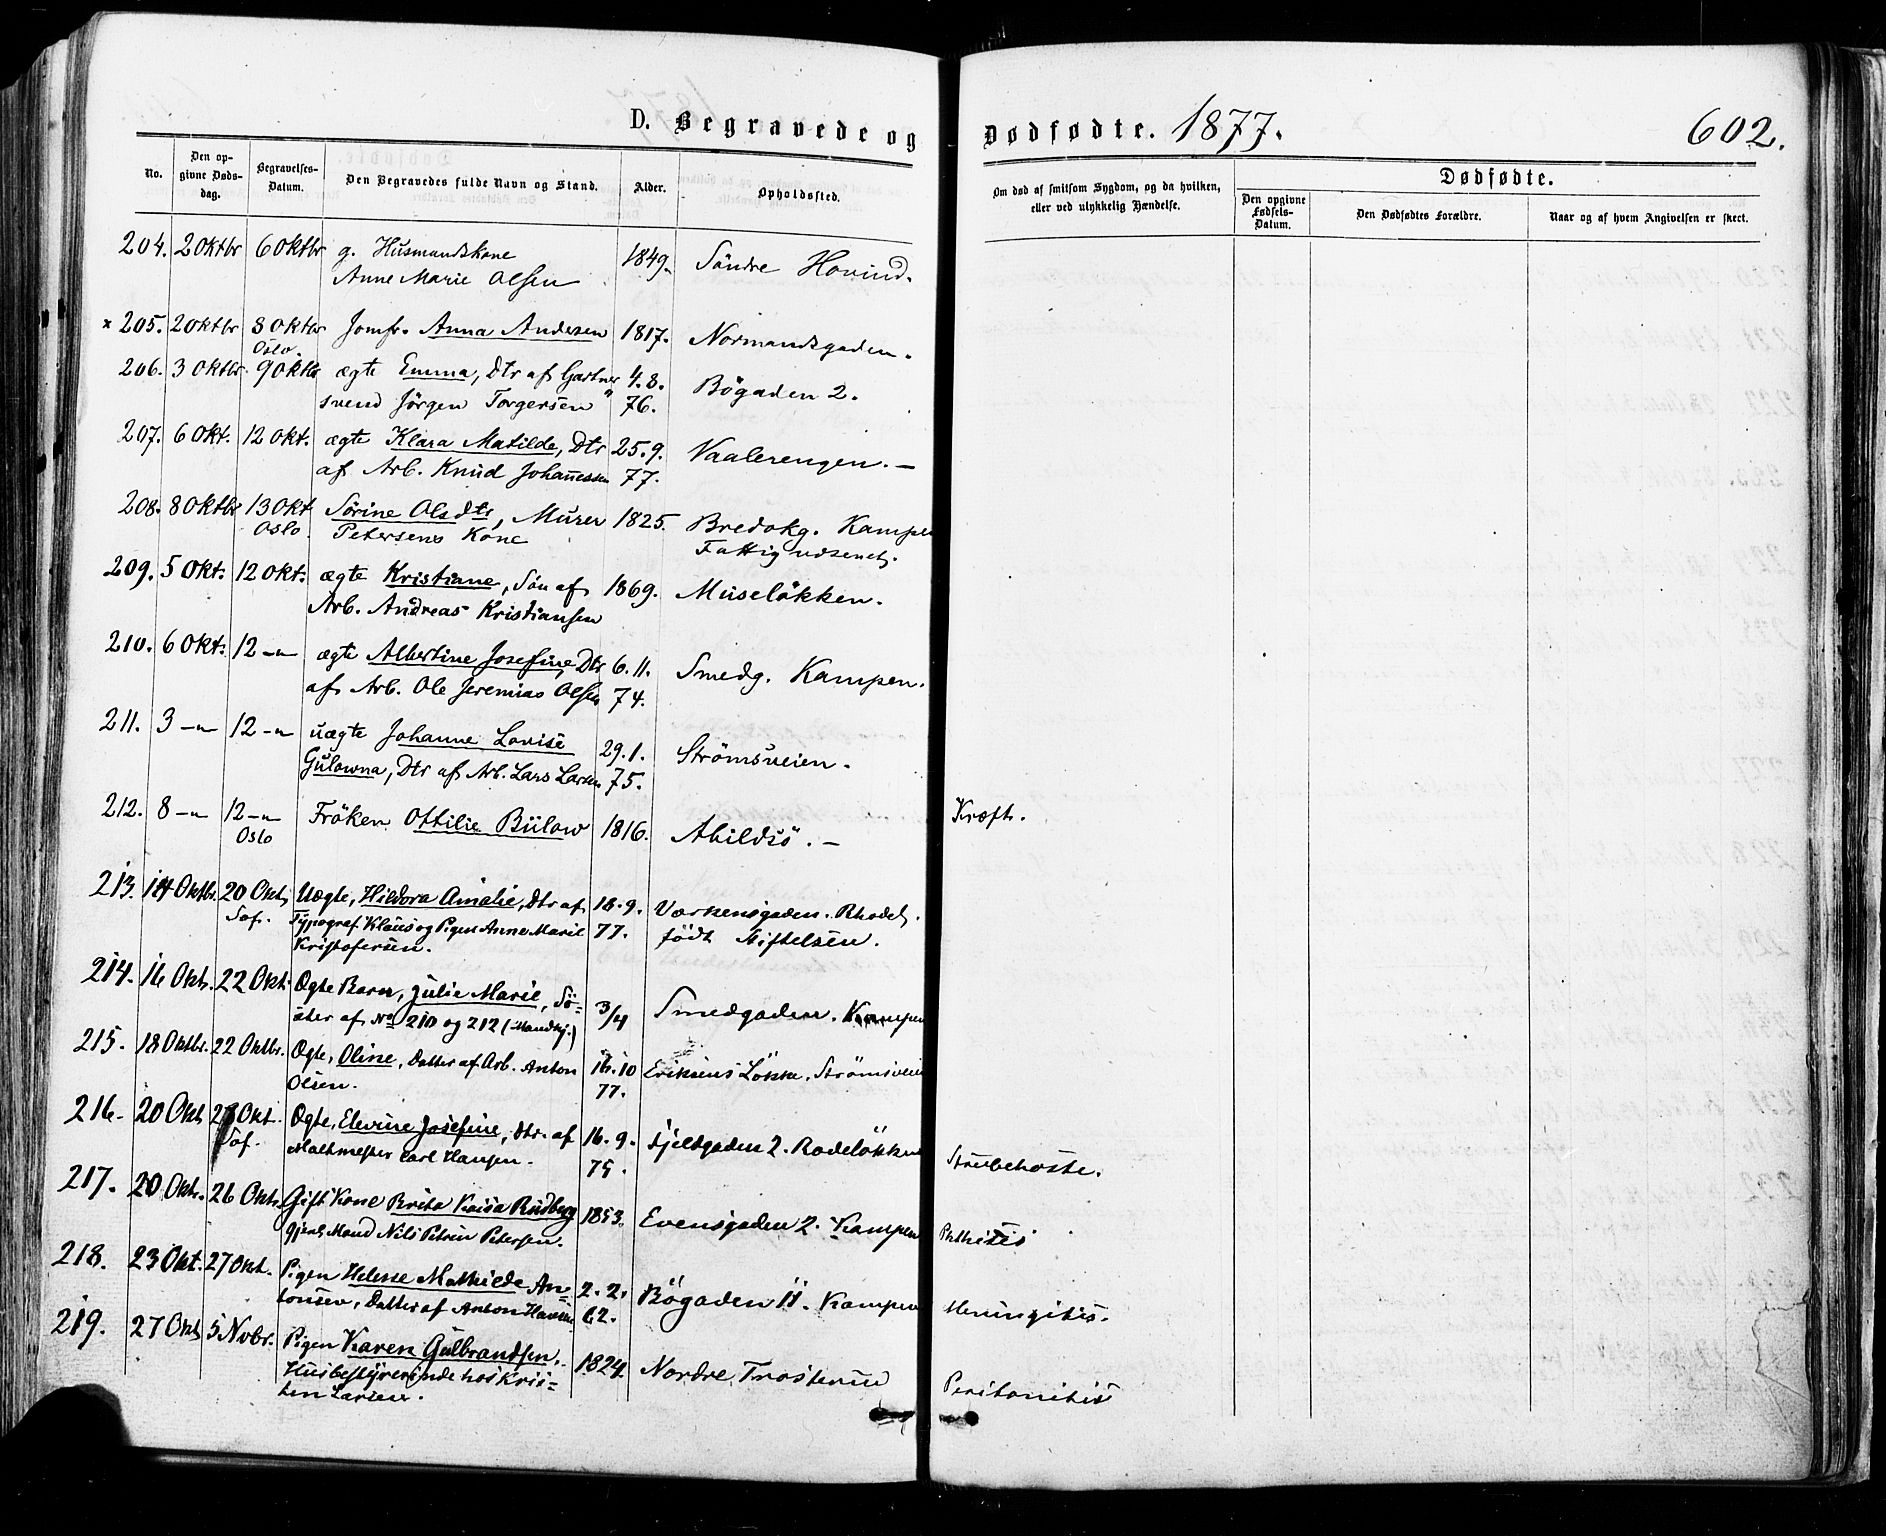 D. Begravede og Dødfødte. 1877. 602.
No.
Den opgivne Dødsdag.
Begravelses-Datum.
Den Begravedes fulde Navn og Stand.
Alder.
Opholdssted.
Om død af smitsom Sygdom, og da hvilken, eller ved ulykkelig Hændelse.
Dødfødte.
Den opgivne Fødsels-Datum.
Den Dødfødtes Forældre.
Naar og af hvem Angivelsen er skeet.
204. 2 Oktbr 6 Oktbr g. Husmandskone 1849. Söndre Hovind.
Anne Marie Olsen
x 205. 2 Oktbr 8 Oktbr Jomfr. Anna Andesen 1817. Normandsgaden.
Oslo.
206. 3 Oktbr. 9 Oktb ægte Emma, Dtr af Gartner 4. 8. Bögaden 2.
svend Jörgen Torgersen 76.
207. 6 Okt. 12 Okt. ægte Klara Matilde, Dtr 25. 9. Vaalerengen. —
af Arb. Knud Johannessen 77.
208. 8 Oktbr 13 Okt Sörine Olsdtr, Murer 1825. Bredokg. Kampen
Oslo. Petersens Kone Fattigvæsenet.
209. 5 Okt. 12 Okt. ægte Kristiane, Sön af 1869. Museløkken.
Arb. Andreas Kristiansen
210. 6 Okt. 12 —„ ægte Albertine Josefine, Dtr 6. 11. Smedg. Kampen.
af Arb. Ole Jeremias Olsen 74.
211. 3 —„ 12 —„ uægte Johanne Lovise 29. 1. Strömsveien.
Gulowna, Dtr af Arb. Lars Larsen 75.
212. 8 —„ 12 —„ Fröken Ottilie Bülow 1816. Abildsö. — Kræft.
Oslo
213. 14 Oktbr. 20 Okt, Uægte, Hildora Amalie, Dtr af 18. 9. Værkensgaden. Rhodel.
Sof. Typograf Klaus og Pigen Anne Marie 77. födt Stiftelsen.
Kristofersen.
214. 16 Okt. 22 Okt. Ægte Barn, Julie Marie, Sö= 3/4 Smedgaden. Kampen
ster af No 210 og 212 (Mandkj.)
215. 18 Oktbr. 22 Oktbr. Ægte, Oline, Datter af Arb. Anton 16. 10 Eriksens Løkke, Strömsveien
Olsen. 77.
216. 20 Okt 28 Okt. Ægte, Elevine Josefine, Dtr. af 16. 9. Fjeldgaden 2. Rodeløkken Strubehoste.
Sof. Maltmester Carl Hansen. 75.
217. 20 Okt. 26 Okt. Gift Kone Brita Kaisa Rudberg 1853. Evensgaden 2. Kampen Phthisis
gjenl. Mand Nils Petrin Petersen.
218. 23 Okt. 27 Okt. Pigen Helene Mathilde An= 2. 2. Bögaden 11. Kampen Meningitis.
tonsen, Datter af Anton Hansen 62.
219. 27 Okt 5 Nvbr. Pigen Karen Gulbrandsen, 1824. Nordre Trosterud Peritonitis
Husbestyrerinde hos Kris=
ten Larsen.